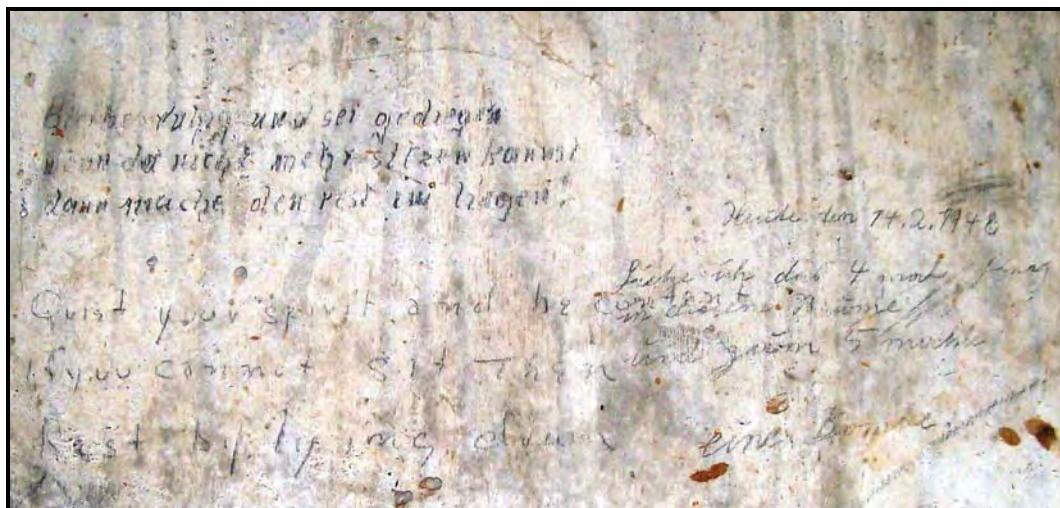 Bleibe ruhig und sei gediegen
wenn du nicht mehr sitzen kannst
dann mache den rest im liegen!
Heute den 14.2.1948
ich das 4 mal
zum 5
eine
Quiet your spirit and be content
If you cannot sit Then
Rest by lying down